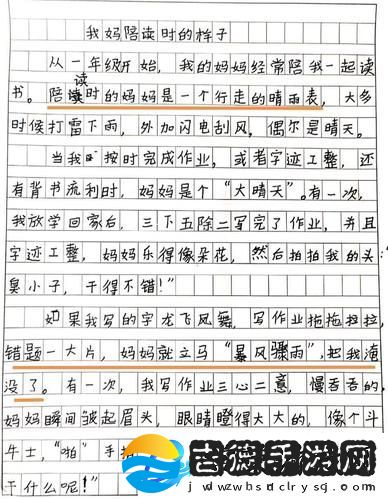 我妈陪读时的样子
从一年级开始，我的妈妈经常陪我一起读
读
书。陪读时的妈妈是一个行走的晴雨表，大多
时候打雷下雨，外加闪电刮风，偶尔是晴天。
当我时按时完成作业，或者字迹工整，还
有背书流利时，妈妈是个“大晴天”。有一次，
我放学回家后，三下五除二写完了作业，并且
字迹工整，妈妈乐得像朵花，然后拍拍我的头：“
臭小子，干得不错！”
如果我写的字龙飞凤舞，写作业拖拖拉拉，
错题一大片，妈妈就立马“暴风骤雨”，把我淹
没了。有一次，我写作业三心二意，慢吞吞的，
妈妈瞬间皱起眉头，眼睛瞪得大大的，像个斗
牛士，“啪”手拍
干什么呢！”
吉德手游网
www.bsndcly.org